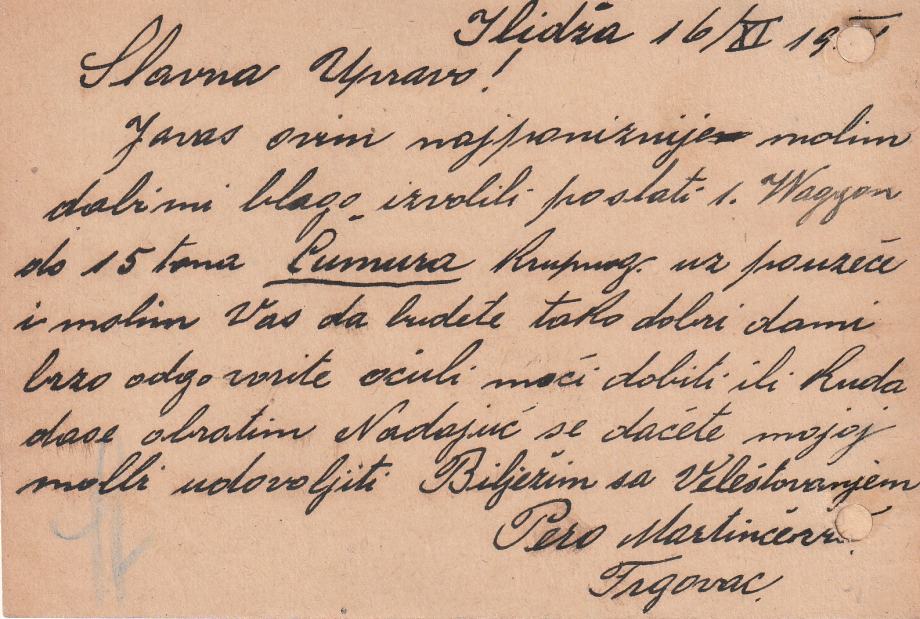 Ilidža 16/XI 19
Slavna Upravo!
Javas ovim najponiznije molim
dabi mi blago izvolili poslati 1. Waggon
do 15 tona Ćumura krupnog. uz pouzeće
i molim Vas da budete tako dobri dami
brzo odgovorite oćuli moći dobiti ili kuda
dase obratim Nadajuć se daćete mojoj
molbi udovoljiti Bilježim sa Veleštovanjem
Pero
Trgovac.